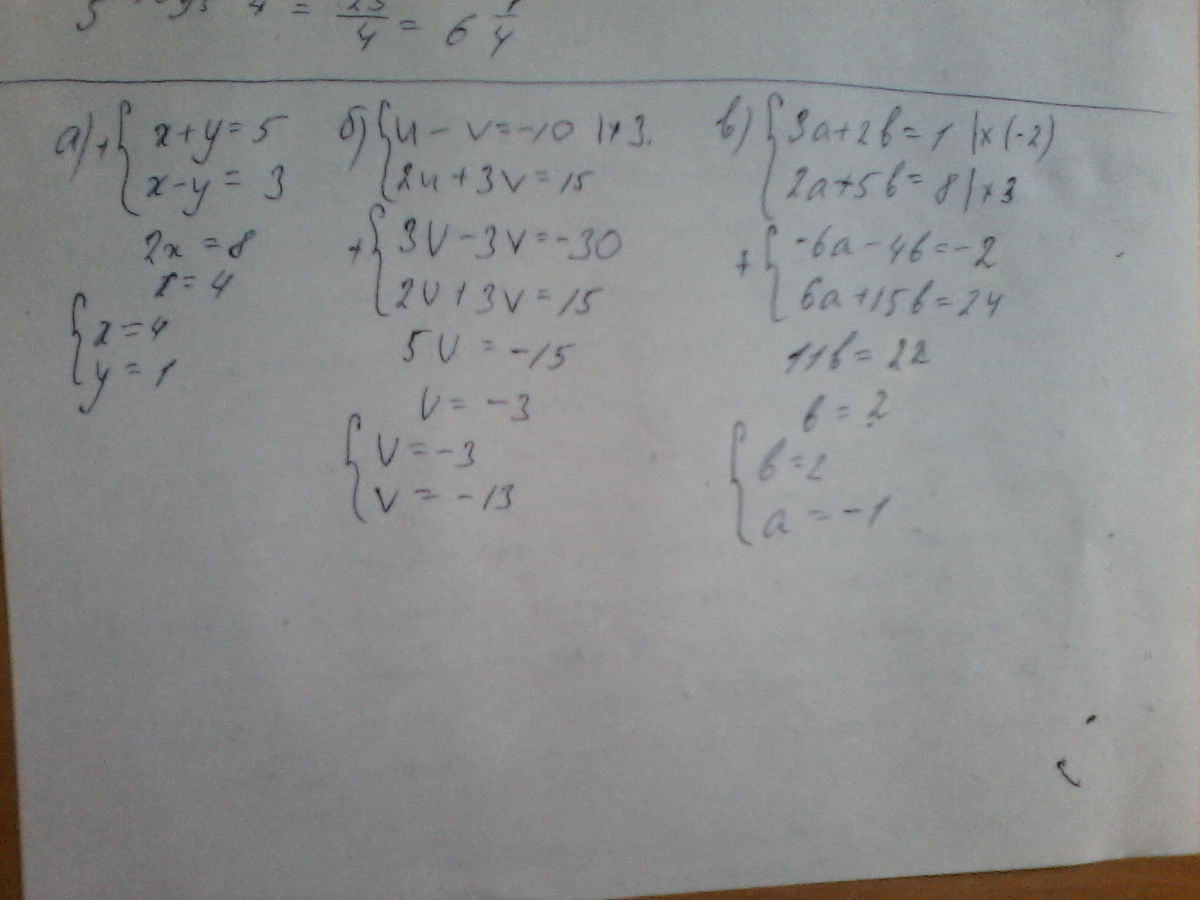 4 = 25/4 = 6 1/4
а) + { x+y=5
x-y=3
2x=8
x=4
{ x=4
y=1
б) { u-v=-10 |×3.
2u+3v=15
+ { 3U-3v=-30
2U+3v=15
5U=-15
U=-3
{ U=-3
v=-13
в) { 3a+2b=1 |×(-2)
2a+5b=8 |×3
+ { -6a-4b=-2
6a+15b=24
11b=22
b=2
{ b=2
a=-1